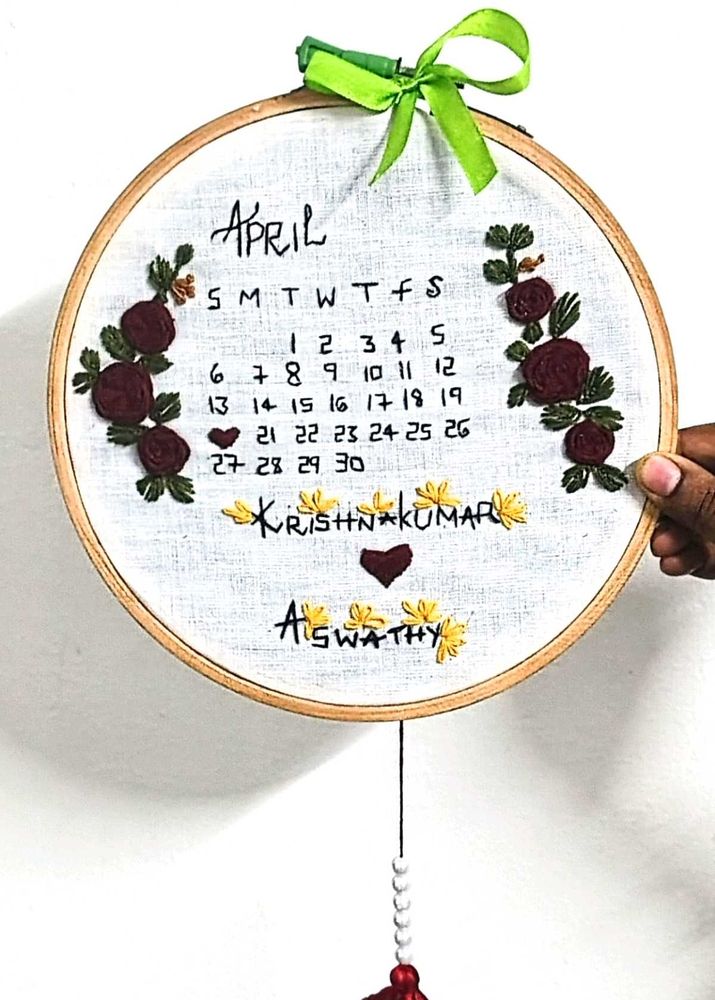 APRIL
S M T W T F S
1 2 3 4 5
6 7 8 9 10 11 12
13 14 15 16 17 18 19
21 22 23 24 25 26
27 28 29 30
KRISHNAKUMAR
AISWATHY